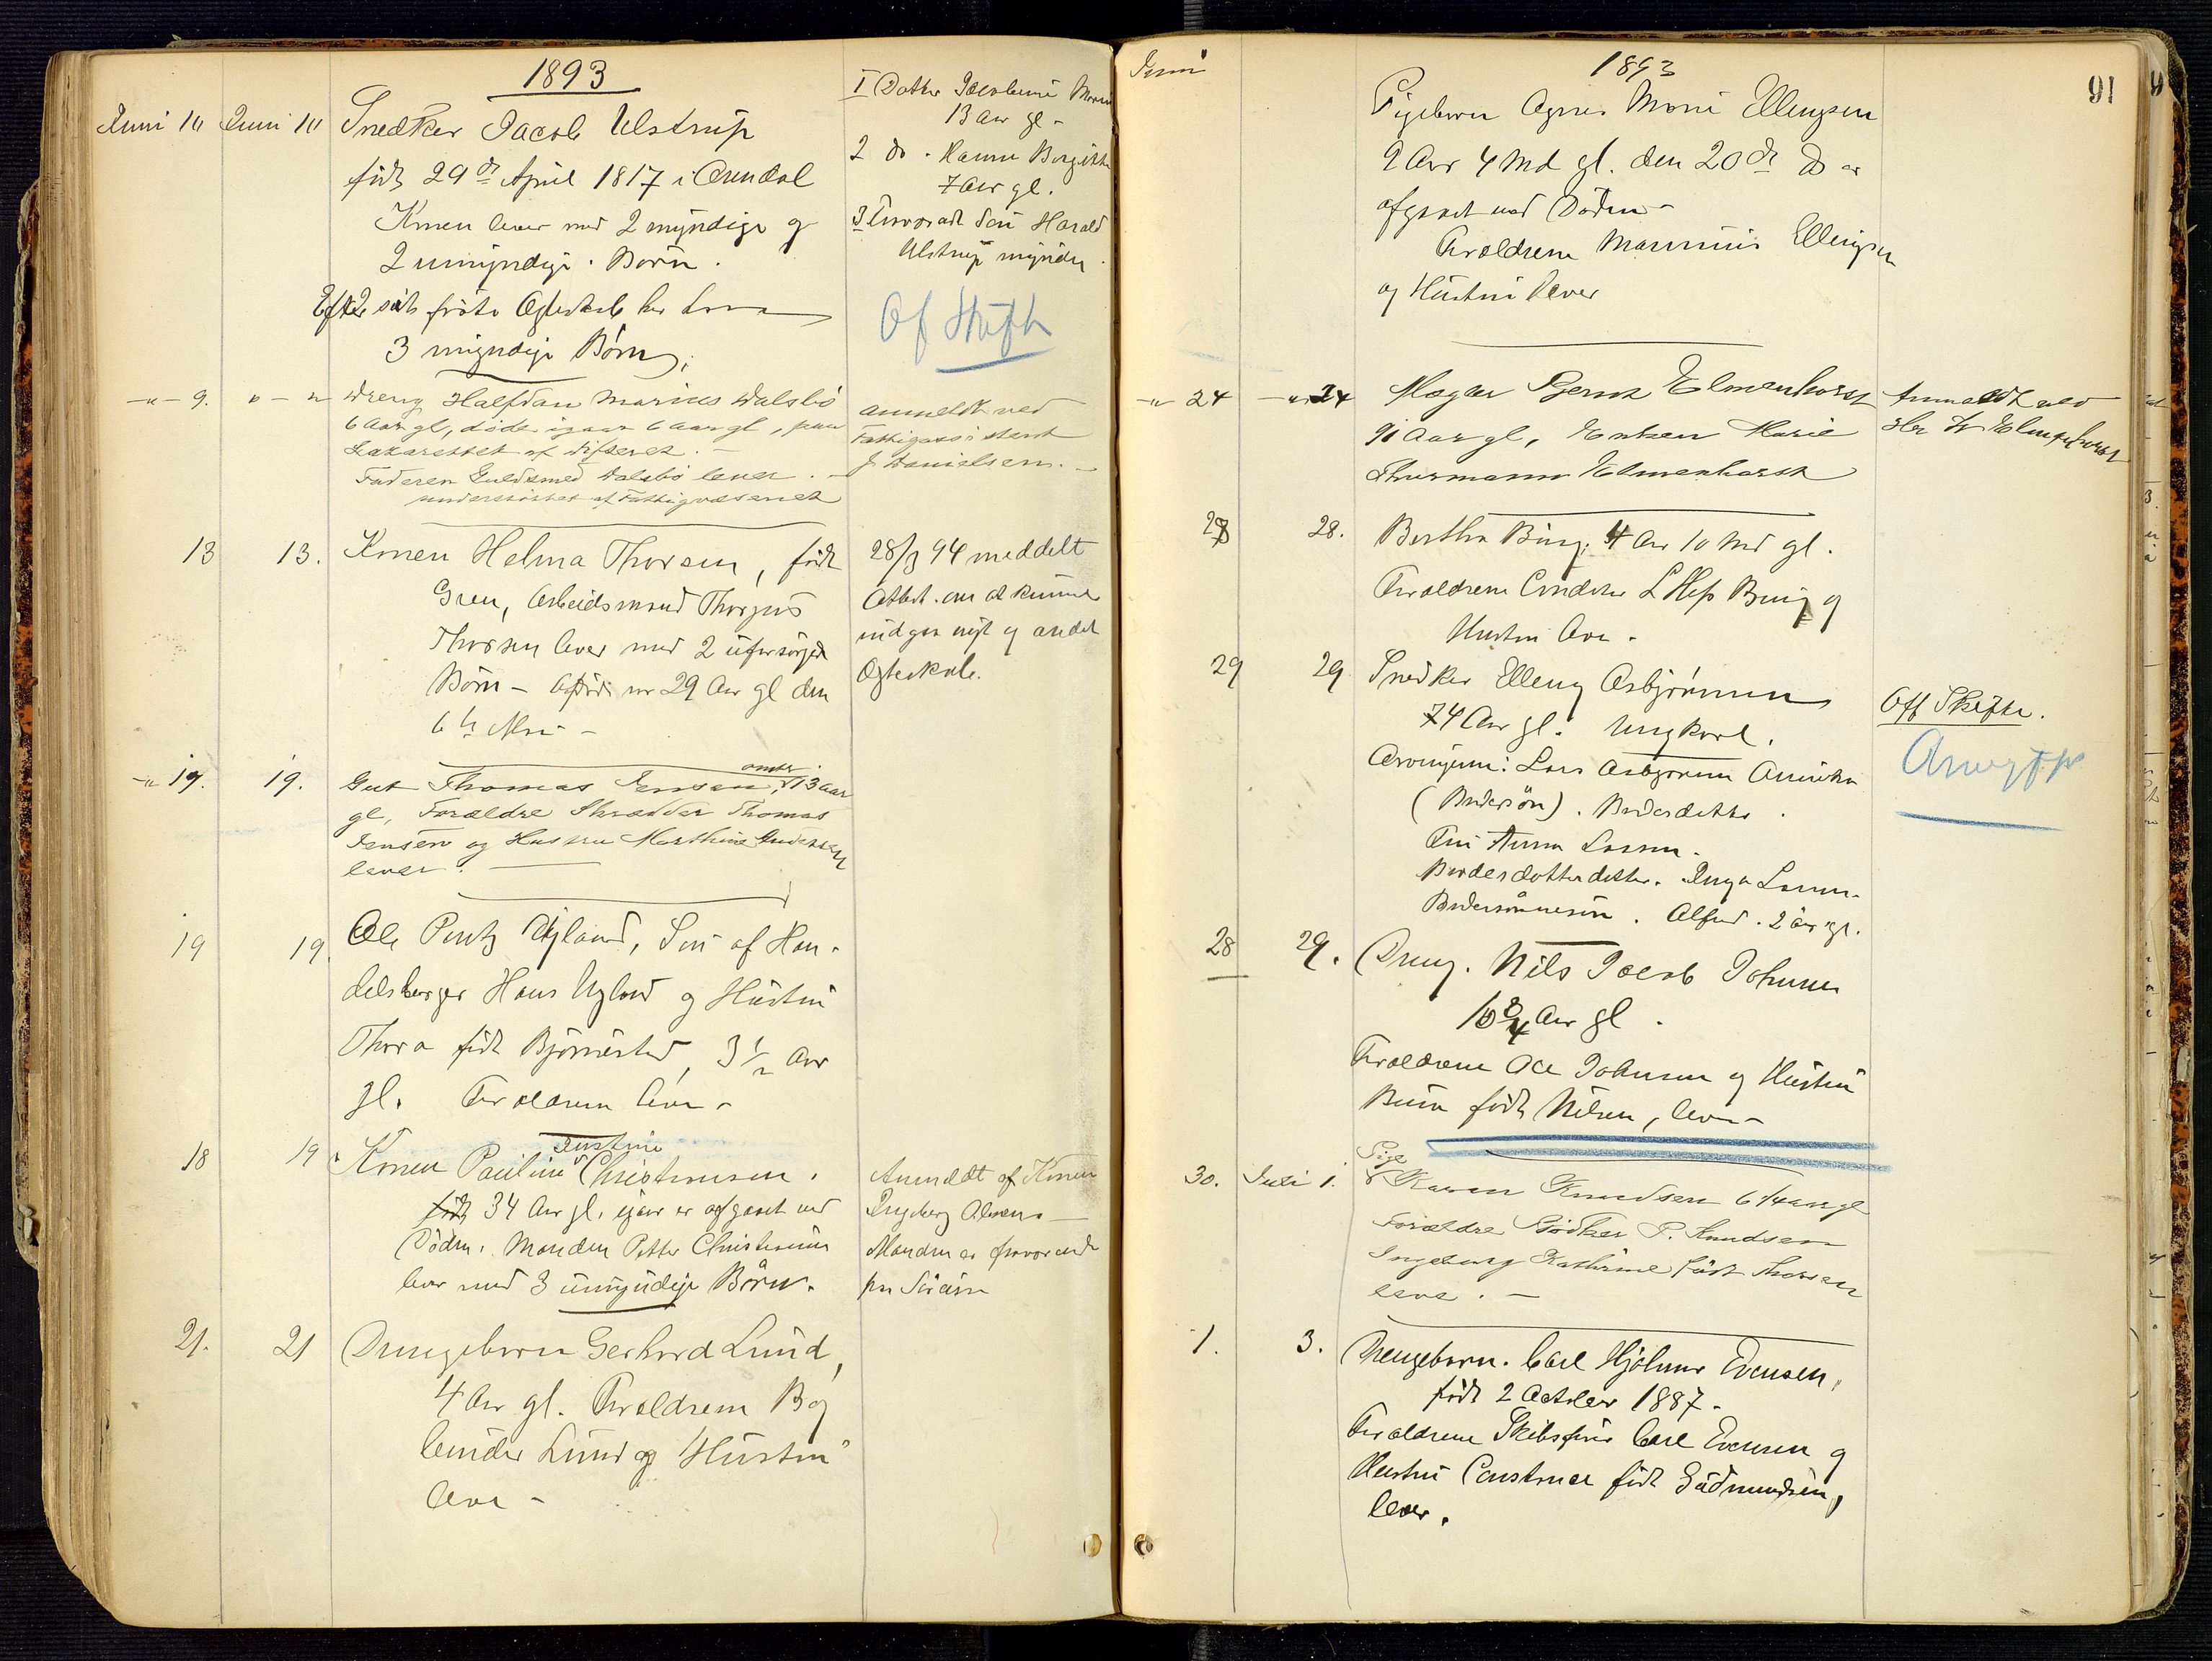 1893
Juni 10 Juni 10 Snedker Jacob Ulstrup
født 29de April 1817 i Arendal
Konen lever med 2 myndige og
2 umyndige Børn.
Efter sit første Ægteskab har han
3 myndige Børn.
I Datter Jacobine Marie
13 Aar gl-
2 do. Hanne Birgitte
7 Aar gl.
3 Søn Harald
Ulstrup myndig
Of Skifte
-"- 9. " - " Dreng Halfdan Marius Dalsbø
6 Aar gl, døde igaar 6 Aar gl, paa
Lazarettet af Difterit. -
Faderen Guldsmed Dalsbø lever. -
understøttet af Fattigvæsenet
anmeldt ved
Fattigassistent
J Danielsen. -
13 13. Konen Helma Thorsen, født
Gren, Arbeidsmand Thorjus
Thorsen lever med 2 uforsørgede
Børn - 29 Aar gl den
6te Mai -
28/3 94 meddelt
Attest. om at kunne
indgaa nyt og andet
Ægteskab.
-"- 19. 19. Gut Thomas Jensen, omtr 13 aar
gl, Forældre Skrædder Thomas
Jensen og Hustru Marthine Andersen
lever. -
19 19. Ole Pentz Ugland, Søn af Han-
delsborger Hans Ugland og Hustru
Thora født Bjørnestad, 3 1/2 Aar
gl. Forældrene lever -
18 19. Konen Pauline Justine Christensen.
født 34 Aar gl. igaar er afgaaet ved
Døden. Manden Petter Christensen
lever med 3 umyndige Børn.
Anmeldt af Konen
Ingeborg Olsen -
Manden er fraværende
paa Søreise
21. 21 Drengebarn Gerhard Lund,
4 Aar gl. Forældrene
Lund og Hustru
lever -
Juni
1893
91
Pigebarn Agnes Marie Ellingsen
9 Aar 4 Md gl. den 20de ds er
afgaaet ved Døden -
Forældrene Ellingsen
og Hustru lever
-"- 24 -"- 24 Mægler Bernt Elmenhorst
91 Aar gl, Enken Marie
Thurmann Elmenhorst
Anmeldt ved
Hr Elmenhorst
28 28. Bertha 4 Aar 10 Md gl.
Forældrene og
Hustru lever -
29 29 Snedker Elling Asbjørnsen
74 Aar gl. Ungkarl.
Arvingerne: Lars Asbjørnsen Amerika
(Brodersøn). Broderdatter.
Anna Larsen.
Broderdatterdatter. Inga Larsen.
Brodersønnesøn. Alfred. 2 år gl.
Off Skifte.
28 29. Dreng. Nils Jacob Johnsen
10 3/4 Aar gl.
Forældrene Ole Johnsen og Hustru
født Nilsen, lever -
30. Juli 1. Pige Karen Knudsen 6 1/4 aar gl
Forældre Bødker P. Knudsen
Ingeborg Kathrine født Thorsen
leve. -
1. 3. Drengebarn. Carl Hjalmar Evensen,
født 2 October 1887.
Forældrene Skibsfører Carl Evensen og
Hustru Constance født Gudmundsen,
lever.